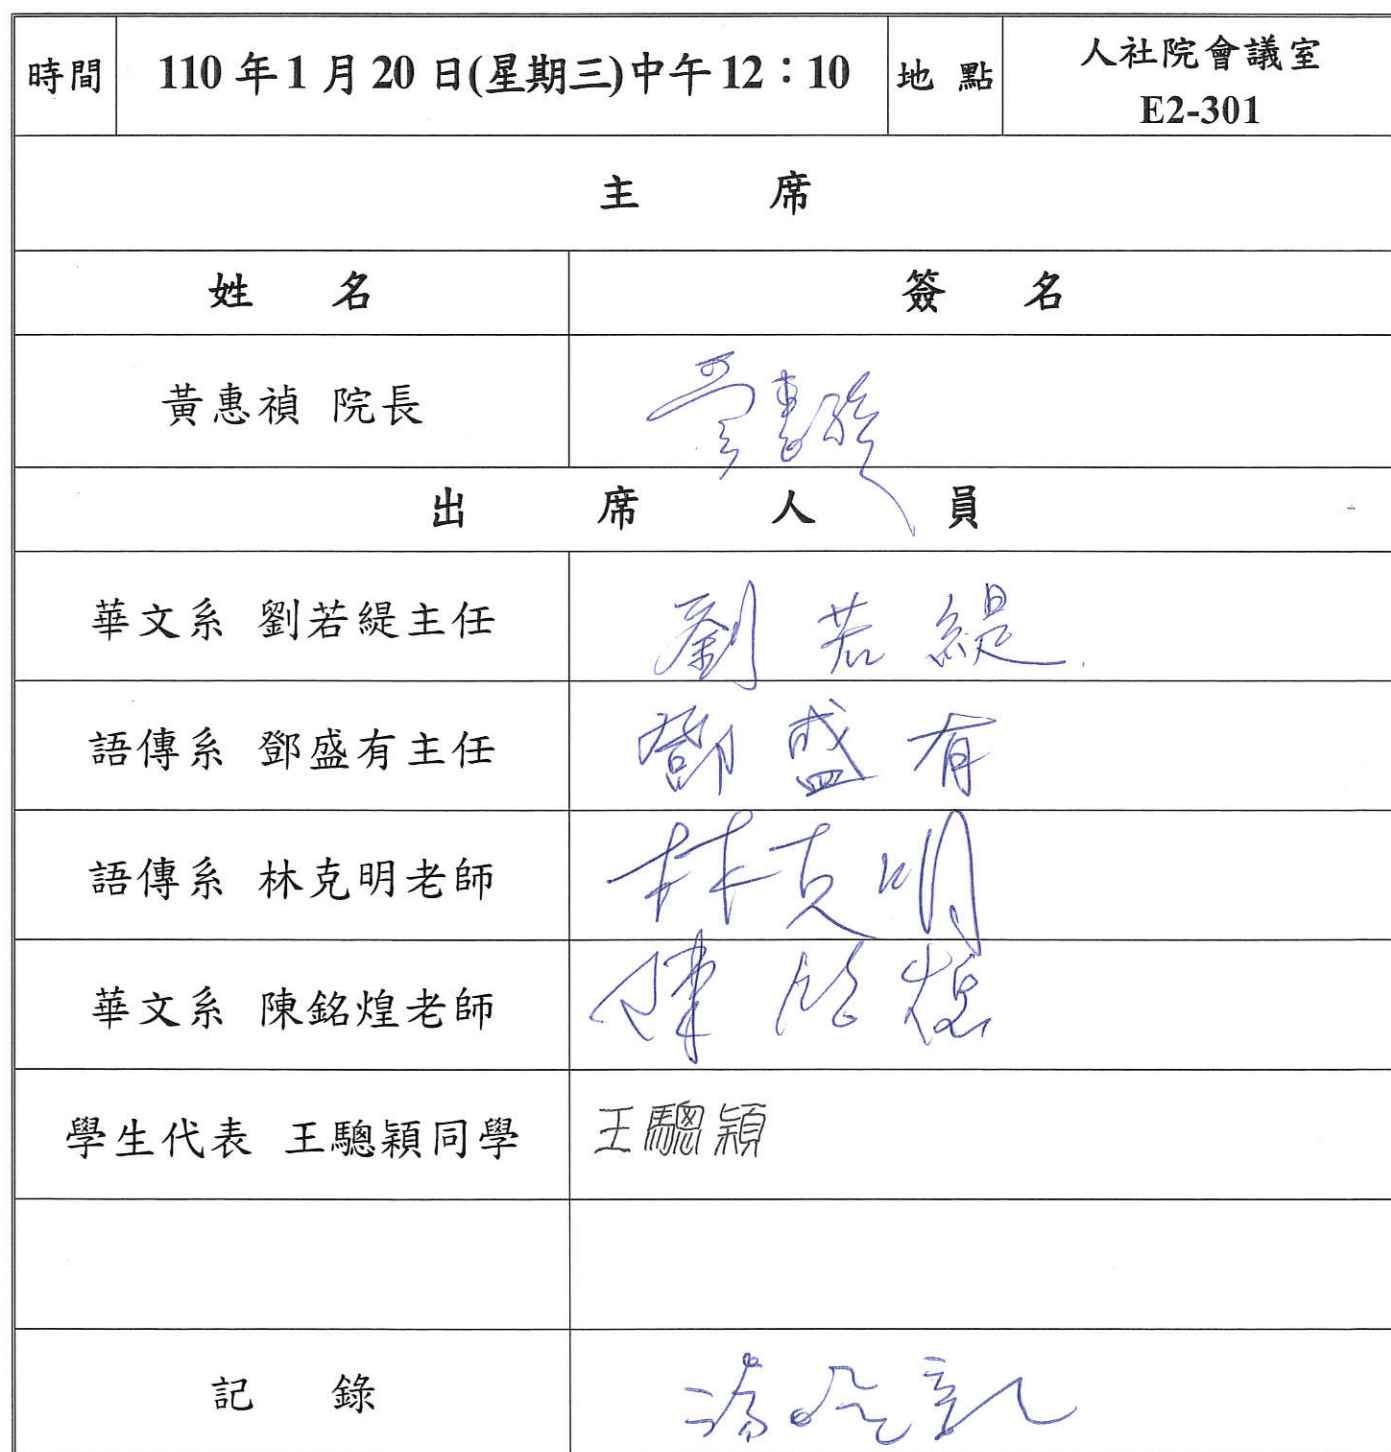 時間 110 年 1 月 20 日(星期三)中午 12：10 地 點 人社院會議室
E2-301
主 席
姓 名 簽 名
黃惠禎 院長 黃惠禎
出 席 人 員
華文系 劉若緹主任 劉若緹
語傳系 鄧盛有主任 鄧盛有
語傳系 林克明老師 林克明
華文系 陳銘煌老師 陳銘煌
學生代表 王驄穎同學 王驄穎
記 錄